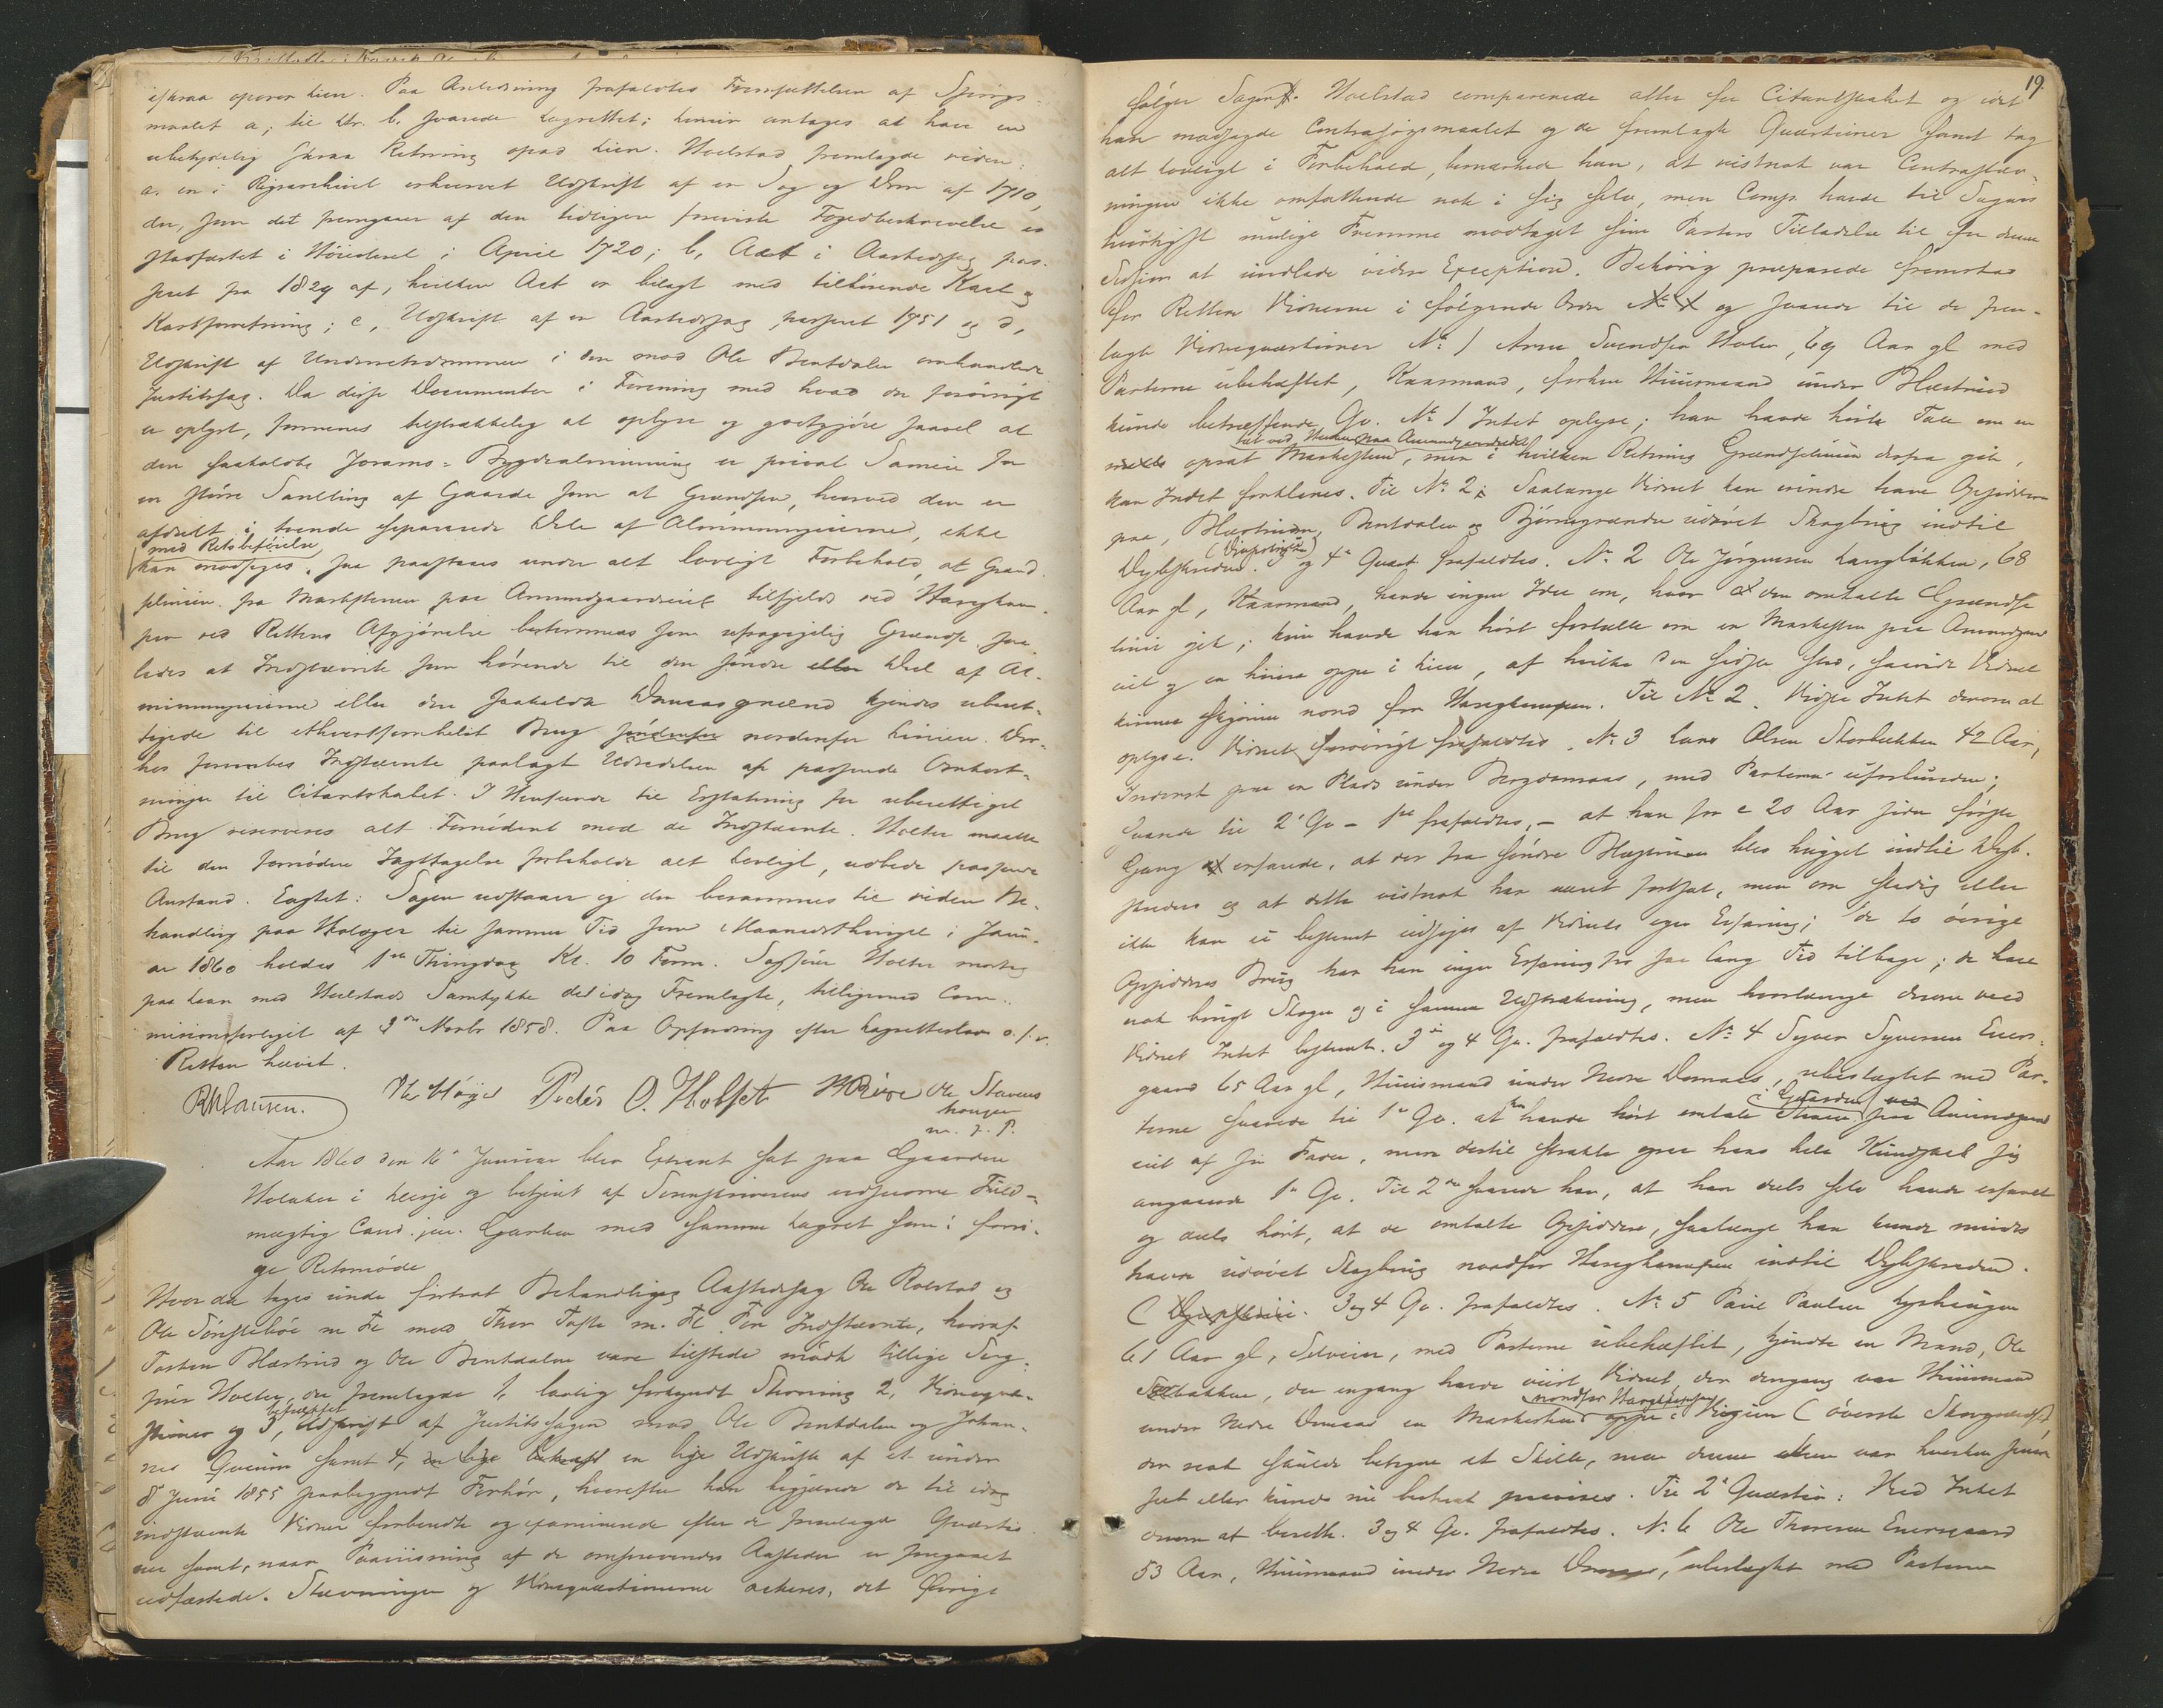 opover Lien. Paa Anledning frafaldtes Fremsættelsen af Spörgs-
maalet a; til Ltr. b. svarede Lagrettet; Linien antages at have en
ubetydelig skraa Retning opad Lien. Hoelstad fremlagde videre:
a. en i Rigsarchivet erhvervet Udskrift af en Sag og Dom af 1710,
der, som det fremgaaer af den tidligere foreviste Fogedbeskrivelse er
stadfæstet i Höiesteret i April 1720; b, Act i Aastedssag pas-
seret fra 1829 af, hvilken Act er belagt med tilhörende Kart og
Kartforretning; c, Udskrift af en Aastedssag passeret 1751 og d,
Udskrift af Underretsdommen i den mod Ole Bentdalen omhandlede
Justitssag. Da disse Documenter i Forening med hvad der forövrigt
er oplyst, formenes tilstrækkelig at oplyse og godtgjöre saavel at
den saakaldte Jorams-Bygdealminning er privat Sameie for
en större Samling af Gaarde som at Grændsen, hvorved den er
afdeelt i tvende separerede Dele af Alminningseierne, ikke
med Retsbeföielse
kan modsiges, saa paastaaes under alt lovligt Forbehold, at Grænd-
selinien fra Markestenen paa Amundgaardseiet tilfjelds ved Haregham-
pen ved Rettens Afgjörelse bestemmes som ufragigelig Grændse, saa-
ledes at Indstævnte som hörende til den söndre eller Deel af Al-
minningseierne eller den saakaldte Domaasgrænd kjendes uberet-
tigede til ethvertsomhelst Brug söndenfor nordenfor Linien. Der-
hos formenes Indstævnte paalagt Udredelsen af passende Omkost-
ninger til Citantskabet. I Henseende til Erstatning for uberettiget
Brug reserveres alt Fornödent mod de Indstævnte. Holter maatte
til den fornödne Iagttagelse forbeholde alt lovligt, udbede passende
Anstand. Eragtet: Sagen udstaaer og den berammes til videre Be-
handling paa Holager til samme Tid som Maanedsthinget i Janu-
ar 1860 holdes 1ste Thingdag Kl. 10 Form. Sagförer Holter modtog
paa Laan med Hoelstads Samtykke det idag Fremlagte, tilligemed Com-
missionsforliget af 2den Novbr 1858. Paa Opfordring efter Lagrettesloven o.s.v.
Retten hævet.
Ole Höyes Peder O. Holset Ole Stavens
hougen
m. f. P.
Aar 1860 den 16de Januar blev Extraret sat paa Gaarden
Holaker i Lesje og betjent af Sorenskriverens edsvorne Fuld-
mægtig Cand. jur. Garben med samme Lagret som i forri-
ge Retsmöde
Hvor da toges under fortsat Behandling Aastedssag Ole Rolstad og
Ole Sönsteböe m Fl mod Thor Tofte m. Fl. For Indstævnte, hvoraf
Torsten Hæstrud og Ole Bentdalen vare tilstede mödte tillige Sag-
förer Holter, der fremlagde 1, lovlig forkyndt Stevning 2, Vidneqvæ-
bekræftet
stioner og 3, Udskrift af Justitssagen mod Ole Bentdalen og Johan-
nes samt 4, en lige Udskrift af et under
8de Juni 1855 paabegyndt Forhör, hvorefter han begjærede de til idag
indstævnte Vidner fremkaldte og examinerede efter de fremlagte Qvæstio-
ner samt, naar Paaviisning af de omprovende Aasteder er foregaaet
edfæstede. Stævningen og Vidneqvæstionerne acteres, det Övrige
19.
fölger Sagen. Hoelstad comparerede atter for Citantskabet og idet
han modsagde Contrasögsmaalet og de fremlagte Qvæstioner samt tog
alt lovligt i Forbehold, bemærkede han, at vistnok var Contrastæv-
ningen ikke omfattende nok i sig selv, men Comp. havde til Sagens
hurtigst mulige Fremme modtaget sine Parters Tilladelse til for denne
Session at undlade videre Exception. Behörig præparerede fremstod
for Retten Vidnerne i fölgende Orden og svarede til de frem-
lagte Vidneqvæstioner No 1 Arne Svendsen Holen, 69 Aar gl med
Parterne ubeheftet, Kaarmand, forhen Huusmand under Hæstrud
kunde betræffende Qv. No 1 Intet oplyse; han havde hört Tale om en
paa Amundgaardseiet
opsat Markesten, men i hvilken Retning Grændselinien derfra gik,
kan Intet forklares. Til No 2; Saalænge Vidnet kan mindes have Opsidderne
paa, Hæstruden, Bentdalen og Björnegaarden udövet Skogbrug indtil
og 4de Qvæst. frafaldtes. No 2 Ole Jörgensen Langlökken, 68
Aar gl, Kaarmand, havde ingen Idee om, hvor den omtalte Grændse
linie gik; kun havde han hört fortælle om en Markesten paa Amundgaard
eiet og en hvine oppe i Lien, af hvilke den sidste stod, saavidt Vidnet
kunne skjönne nord for Hareghampen. Til No 2. Vidste Intet derom at
oplyse. Vidnet forövrigt frafaldtes. No 3 Lars Olsen Storbækken 42 Aar,
Inderst paa en Plads under Bergdomaas, med Parterne uforbunden;
Svarede til 2de Qv - 1ste frafaldtes, - at han for c 20 Aar siden förste
Gang erfarede, at der fra söndre Hæstruen blev hugget indtil Dyb-
skreden og at dette vistnok har været fortsat, men om stedig eller
ikke kan ei bestemt udsiges af Vidnets egen Erfaring; de to övrige
Opsidderes Brug har han ingen Erfaring for saa lang Tid tilbage; de have
nok brugt Skogen og i samme Udstrækning, men hvorlænge derom veed
Vidnet Intet bestemt. 3de og 4 Qv. frafaldtes. No 4 Syver Syversen Evers-
gaard 65 Aar gl, Huusmand under Nedre Domaas, ubeslægtet med Par-
i Gaarden ved
terne svarede til 1ste Qv. at han havde hört omtale Stenen paa Amundgaard
eiet af sin Fader, men dertil strakte ogsaa hans hele Kundskab sig
angaaende 1ste Qv. Til 2den svarede han, at han deels selv havde erfaret
og deels hört, at de omtalte Opsiddere, saalænge han kunde mindes
havde udövet Skogbrug nordfor Hareghampen indtil Dybskreden.
3 og 4 Qv. frafaldtes. No 5 Poul Paulsen
61 Aar gl, Selveier, med Parterne ubeheftet, kjendte en Mand, Ole
der engang havde viist Vidnet der dengang var Huusmand
nordfor Hareghampen
under Nedre Domaas en Markesten oppe i (överste Skovgrændse)
der nok skulde betegne et Skille, men denne Steen var hverken
seet eller kunde nu bestemt paavises. Til 2de Qvæstio: Veed Intet
derom at berette. 3 og 4 Qv. frafaldtes. No. 6 Ole Thoresen Eversgaard
53 Aar, Huusmand under Nedre Domaas, ubeslægtet med Parterne